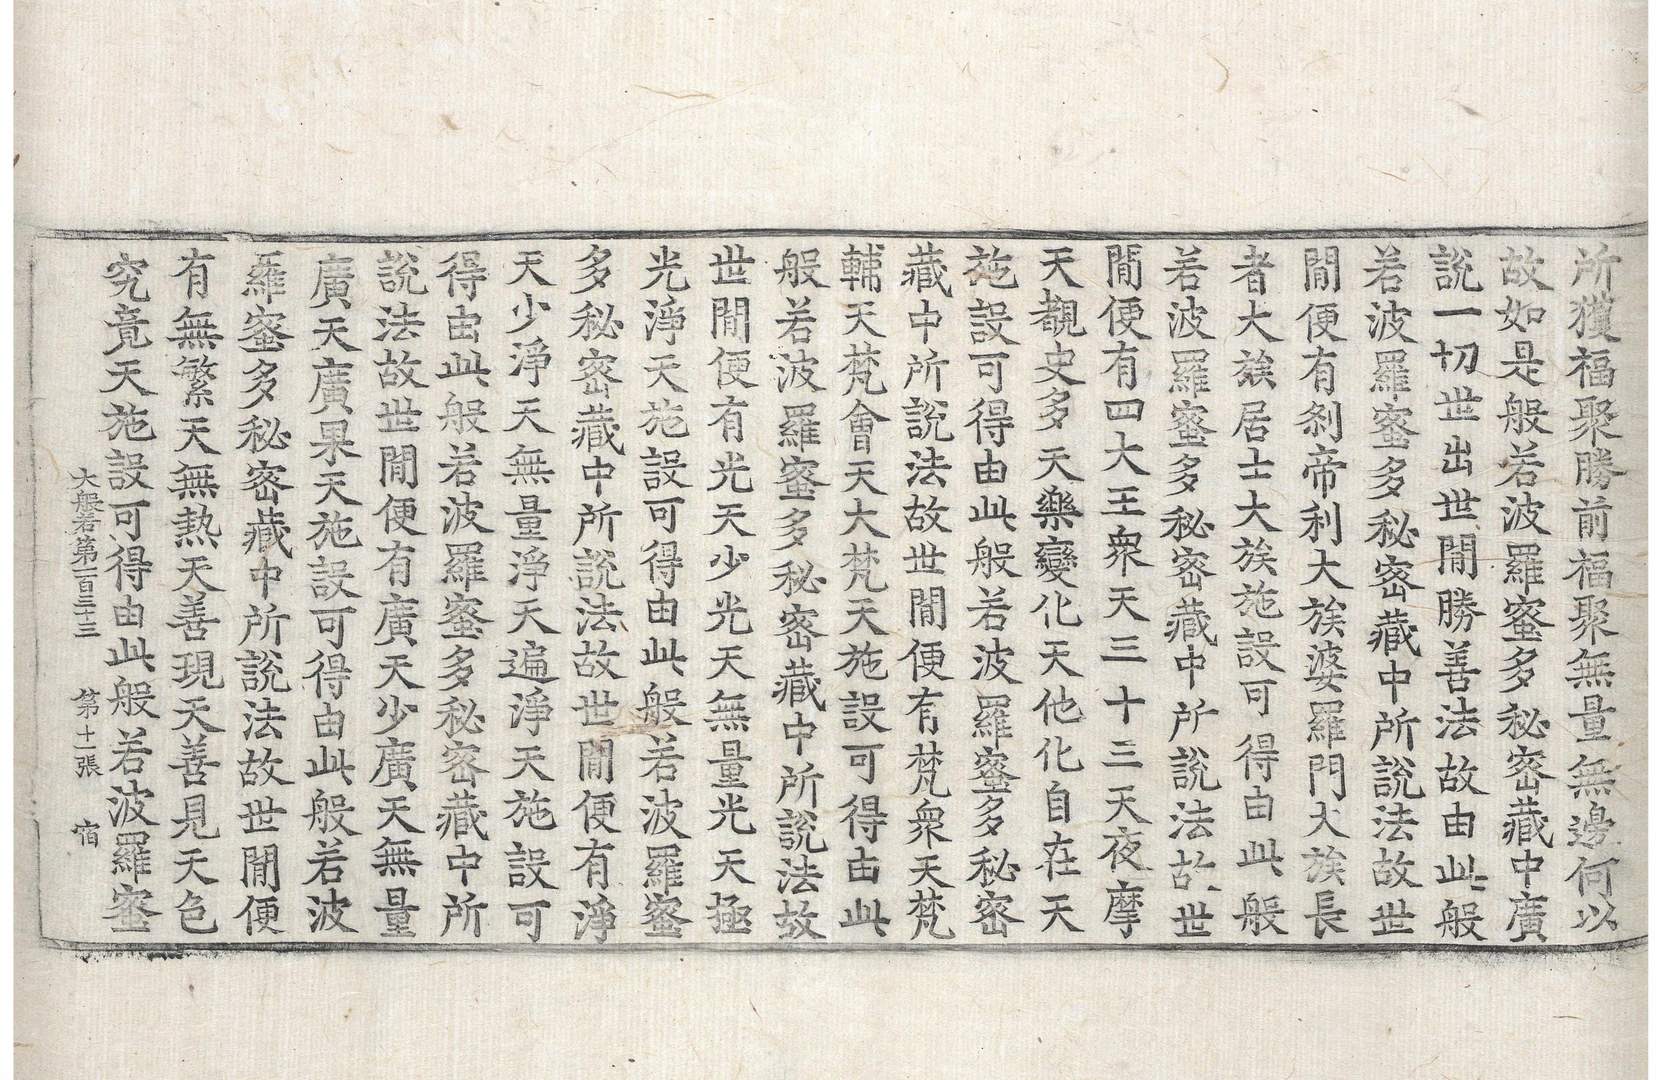 所獲福聚勝前福聚無量無邊何以
故如是般若波羅蜜多秘密藏中廣
說一切世出世閒勝善法故由此般
若波羅蜜多秘密藏中所說法故世
閒便有刹帝利大族婆羅門大族長
者大族居士大族施設可得由此般
若波羅蜜多秘密藏中所說法故世
閒便有四大王衆天三十三天夜摩
天覩史多天樂變化天他化自在天
施設可得由此般若波羅蜜多秘密
藏中所說法故世閒便有梵衆天梵
輔天梵會天大梵天施設可得由此
般若波羅蜜多秘密藏中所說法故
世閒便有光天少光天無量光天極
光淨天施設可得由此般若波羅蜜
多秘密藏中所說法故世閒便有淨
天少淨天無量淨天遍淨天施設可
得由此般若波羅蜜多秘密藏中所
說法故世閒便有廣天少廣天無量
廣天廣果天施設可得由此般若波
羅蜜多秘密藏中所說法故世閒便
有無繁天無熱天善現天善見天色
究竟天施設可得由此般若波羅蜜
大般若第一百三十三 第十一張 宿